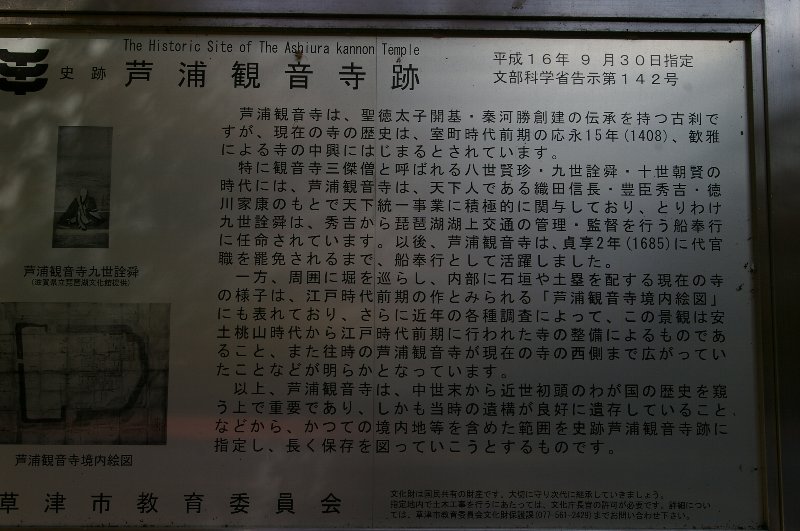 The Historic Site of The Ashiura kannon Temple
史跡 芦浦観音寺跡
平成16年9月30日指定
文部科学省告示第142号
芦浦観音寺は、聖徳太子開基・秦河勝創建の伝承を持つ古刹で
すが、現在の寺の歴史は、室町時代前期の応永15年(1408)、歓雅
による寺の中興にはじまるとされています。
特に観音寺三傑僧と呼ばれる八世賢珍・九世詮舜・十世朝賢の
時代には、芦浦観音寺は、天下人である織田信長・豊臣秀吉・徳
川家康のもとで天下統一事業に積極的に関与しており、とりわけ
九世詮舜は、秀吉から琵琶湖湖上交通の管理・監督を行う船奉行
に任命されています。以後、芦浦観音寺は、貞享2年(1685)に代官
職を罷免されるまで、船奉行として活躍しました。
一方、周囲に堀を巡らし、内部に石垣や土塁を配する現在の寺
の様子は、江戸時代前期の作とみられる「芦浦観音寺境内絵図」
にも表れており、さらに近年の各種調査によって、この景観は安
土桃山時代から江戸時代前期に行われた寺の整備によるものであ
ること、また往時の芦浦観音寺が現在の寺の西側まで広がってい
たことなどが明らかとなっています。
以上、芦浦観音寺は、中世末から近世初頭のわが国の歴史を窺
う上で重要であり、しかも当時の遺構が良好に遺存していること
などから、かつての境内地等を含めた範囲を史跡芦浦観音寺跡に
指定し、長く保存を図っていこうとするものです。
芦浦観音寺九世詮舜
(滋賀県立琵琶湖文化館提供)
芦浦観音寺境内絵図
草津市教育委員会
文化財は国民共有の財産です。大切に守り次代に継承していきましょう。
指定地内で土木工事を行うにあたっては、文化庁長官の許可が必要です。詳細につい
ては、草津市教育委員会文化財保護課(077-561-2429)までお問い合わせ下さい。